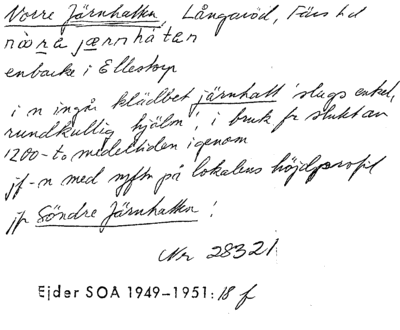 Norre Järnhatten, Långaröd, Färs hd
nòrə jærnhátən
enbacke i Ellestorp
i n ingår klädbet järnhatt 'slags enkel,
rundkullig hjälm', i bruk fr slutet av
1200-t. medeltiden igenom
jf-n med syftn på lokalens höjdprofil
jfr Söndre Järnhatten!
Nr 28321
Ejder SOA 1949-1951: 18 f